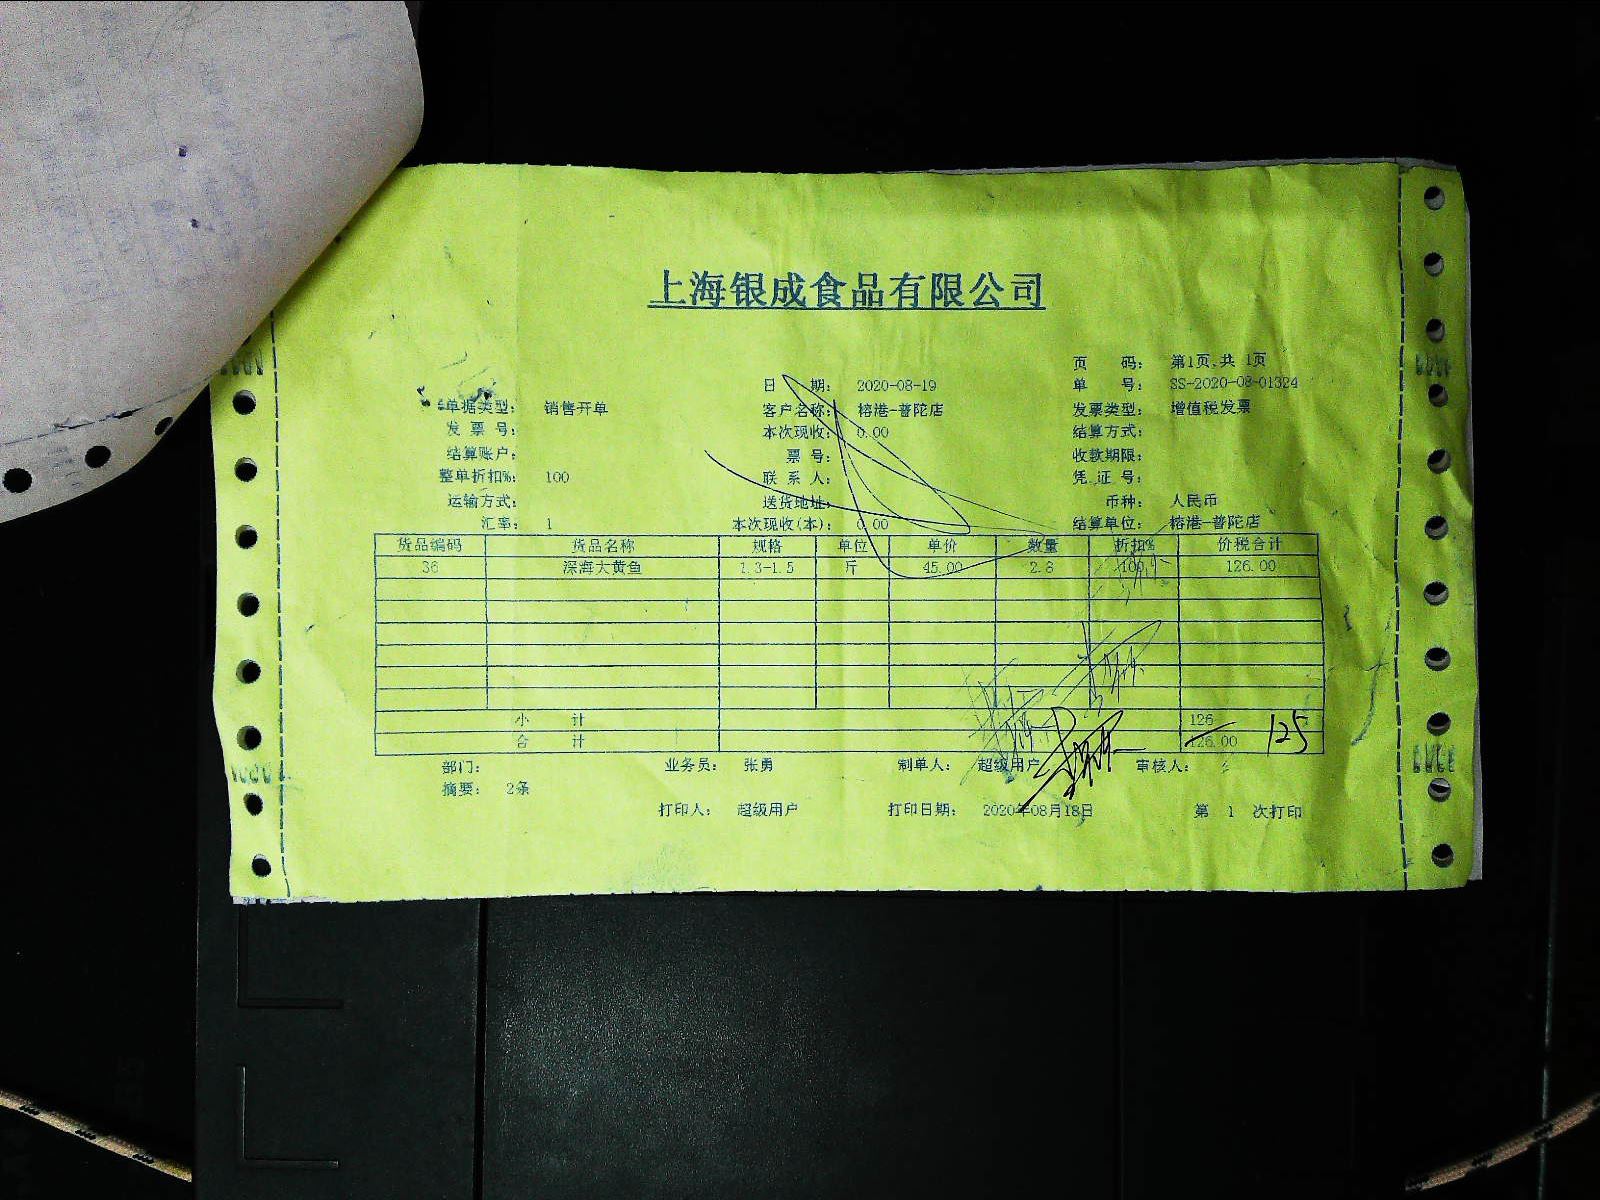 上海银成食品有限公司
页 码: 第1页,共 1页
日 期: 2020-08-19 单 号: SS-2020-08-01324
单据类型: 销售开单 客户名称: 榕港-普陀店 发票类型: 增值税发票
发 票 号: 本次现收: 0.00 结算方式:
结算账户: 票 号: 收款期限:
整单折扣%: 100 联 系 人: 凭 证 号:
运输方式: 送货地址: 币种: 人民币
汇率: 1 本次现收(本): 0.00 结算单位: 榕港-普陀店
货品编码 货品名称 规格 单位 单价 数量 折扣% 价税合计
36 深海大黄鱼 1.3-1.5 斤 45.00 2.8 100 126.00
小 计 126
合 计 126.00 125
部门: 业务员: 张勇 制单人: 超级用户 审核人:
摘要: 2条
打印人: 超级用户 打印日期: 2020年08月18日 第 1 次打印